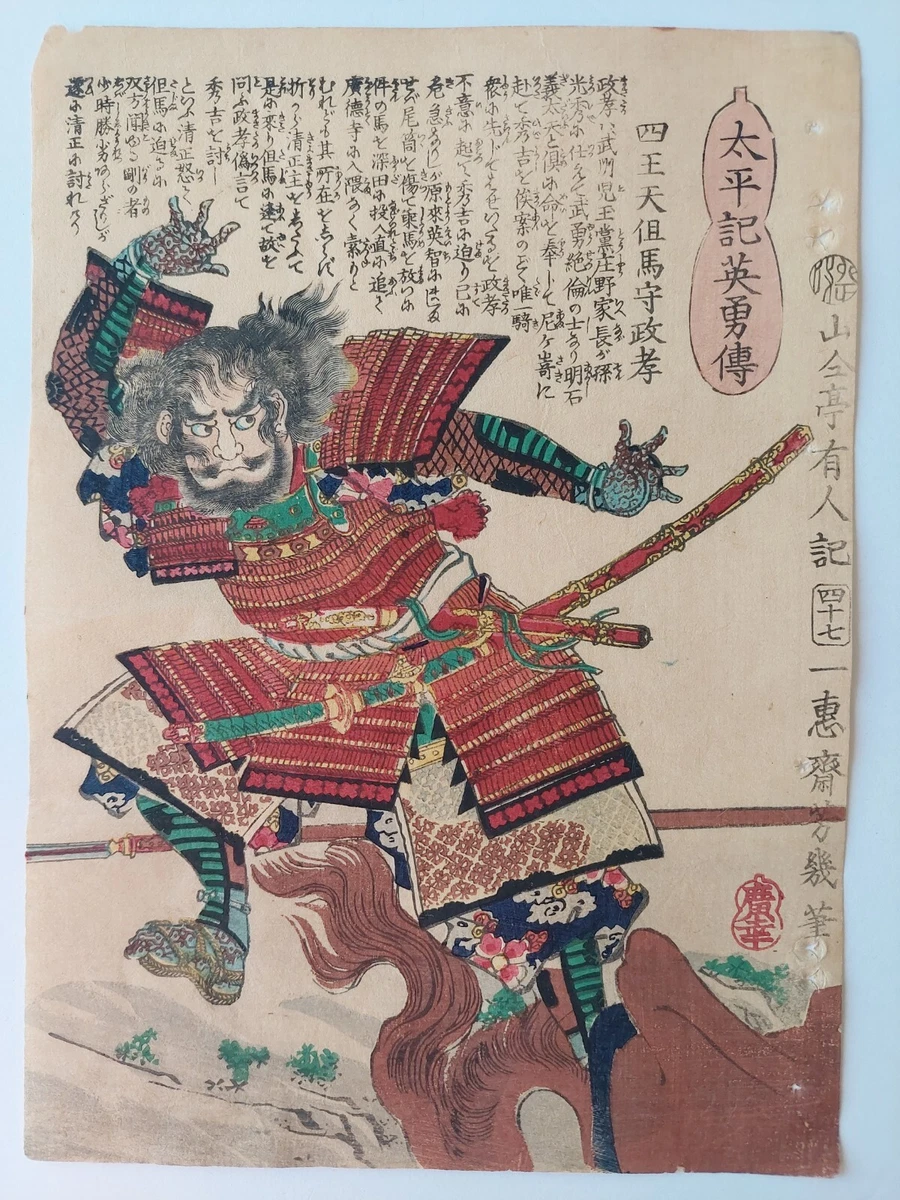 太平記英勇傳
四王天但馬守政孝
政孝ハ武州児玉党庄野家長が孫
光秀に仕えて武勇絶倫の士なり明石
義太夫と倶に命を奉して尼ヶ崎に
赴て秀吉を俟案のごとく唯一騎
衆に先だてはせいたるを政孝
不意に起て秀吉に迫り已に
危急なりしが原来英智に
馬尾筒を傷て乗馬を放つに
件の馬を深田に投入直に追て
廣德寺に入隈なく索れ
どもれども其所在をしらず
折から清正主をしたふて
是に来り但馬に逢て故を
問ふ政孝偽言て
秀吉を討し
といふ清正怒て
但馬に迫るに
双方聞ゆる剛の者
少時勝劣あらざりしが
還に清正に討れけり
山々亭有人記
四十七
一惠齋芳幾筆
廣幸